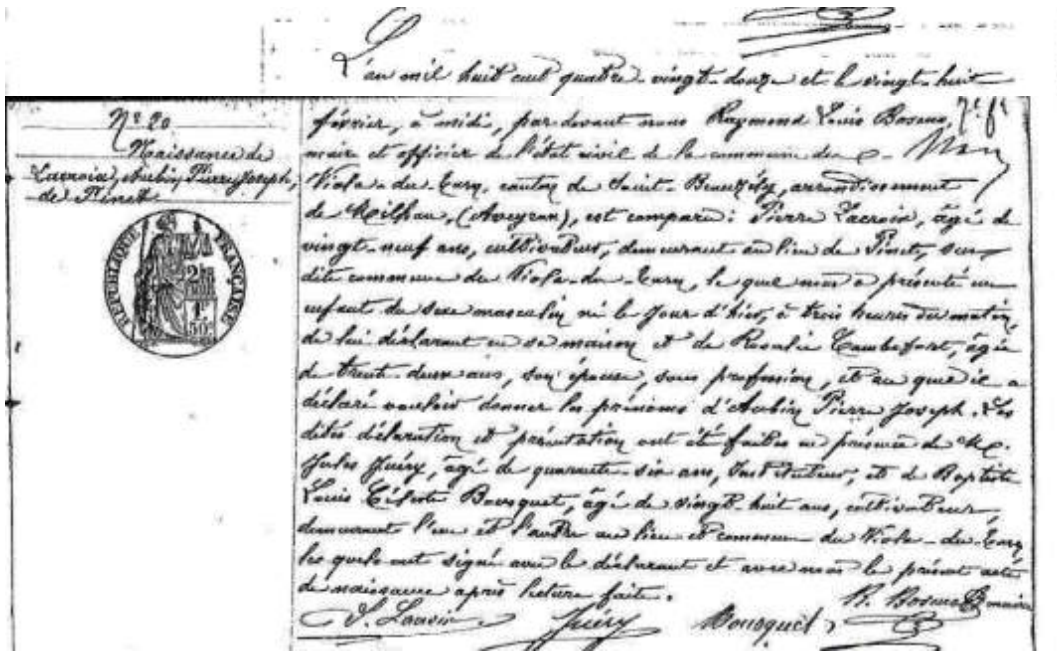 L'an mil huit cent quatre-vingt-douze et le vingt-huit
Nº 20
Naissance de
Lacroix, Aubin Pierre Joseph,
de Pinet
REPUBLIQUE FRANÇAISE
février, à midi, par devant nous Raymond Louis
maire et officier de l'état civil de la commune du
Viala-du-Tarn, canton de Saint-Beauzély, arrondissement
de Milhau, (Aveyron), est comparu: Pierre Lacroix, âgé de
vingt-neuf ans, cultivateur, demeurant au lieu de Pinet, sus
dite commune du Viala-du-Tarn, le quel nous a présenté un
enfant du sexe masculin né le jour d'hier, à trois heures du matin,
de lui déclarant en sa maison et de Rosalie Combefort, âgée
de trente-deux ans, son épouse, sans profession, et au quel il a
déclaré vouloir donner les prénoms d'Aubin Pierre Joseph. Les
dites déclaration et présentation ont été faites en présence de M.
Jules Juéry, âgé de quarante-six ans, Instituteur, et de Baptiste
Louis Céleste Bousquet, âgé de vingt-huit ans, cultivateur,
demeurant l'un et l'autre au lieu et commune du Viala-du-Tarn
les quels ont signé avec le déclarant et avec nous le présent acte
de naissance après lecture faite.
maire
Juéry Bousquet